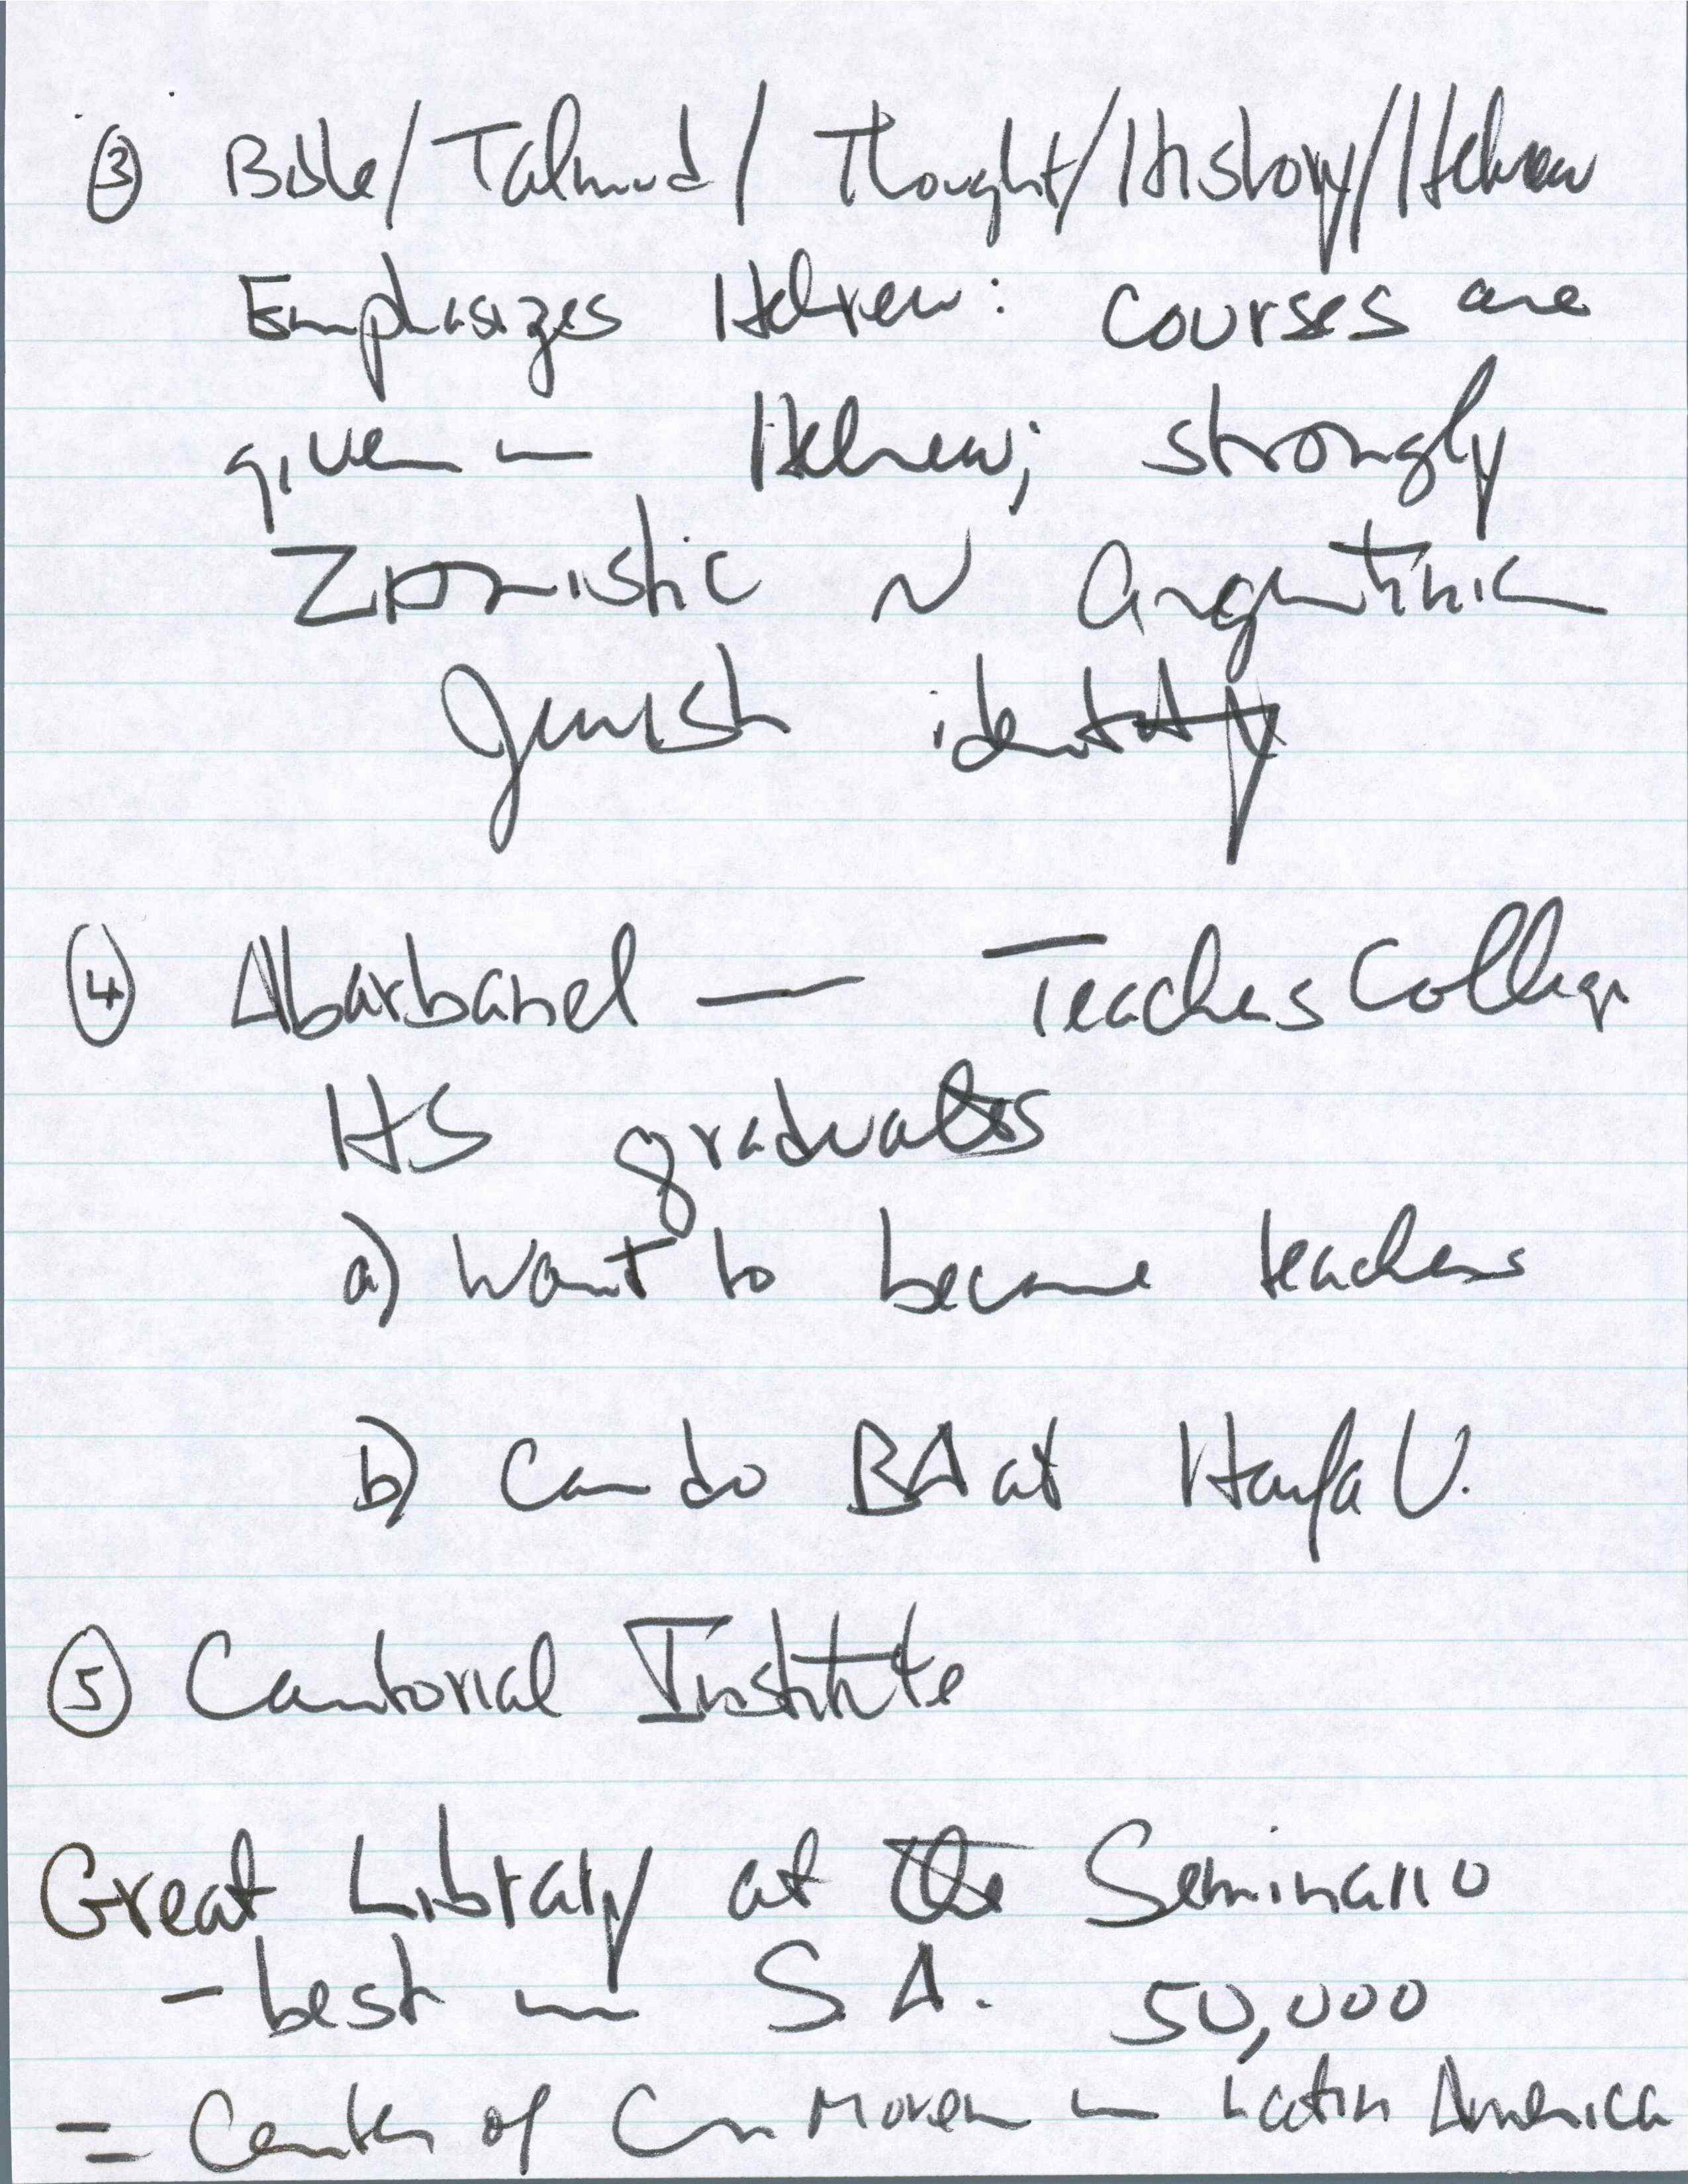 ③ Bible/Talmud/Thought/History/Hebrew
Emphasizes Hebrew: courses are
given in Hebrew; strongly
Zionistic ~ Argentinian
Jewish identity
④ Abarbanel — Teachers College
HS graduates
a) want to become teachers
b) Can do BA at Haifa U.
⑤ Cantorial Institute
Great Library at the Seminario
- best in S.A. 50,000
= Center of Con Movem in Latin America